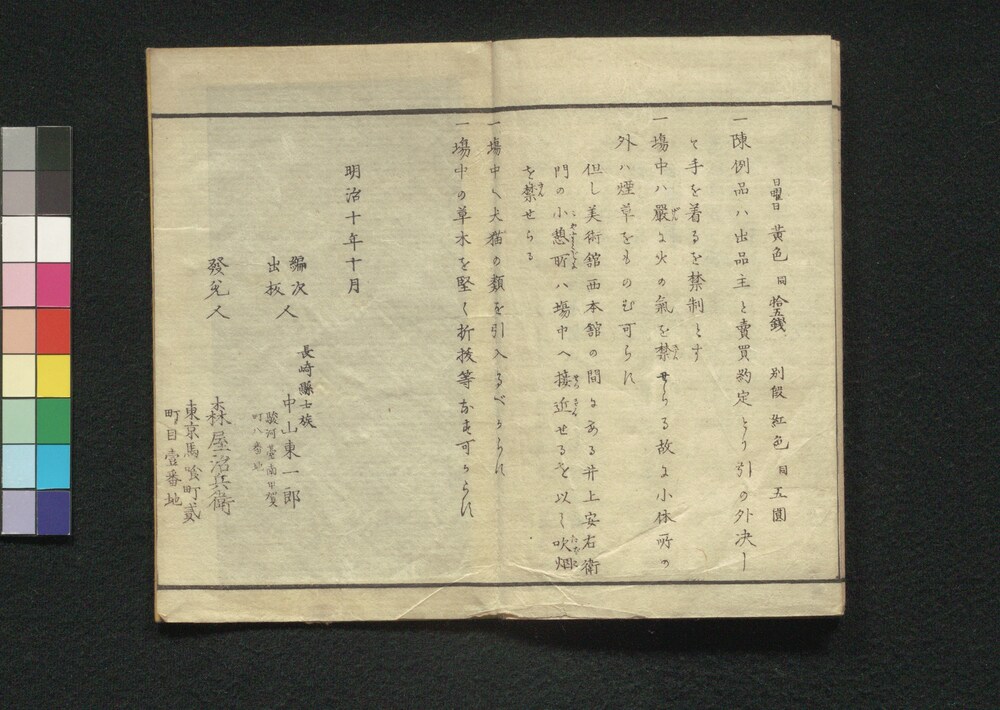 日曜日 黄色 同 拾五錢 別段 紅色 同 五圓
一陳例品ハ出品主と賣買約定とり引の外决し
て手を着るを禁制とす
一塲中ハ嚴に火の氣を禁せらる故に小休所の
外ハ煙草をものむ可らす
但し美術舘西本舘の間にある井上安右衛
門の小憩所ハ塲中へ接近せるを以て吹烟
を禁せらる
一塲中へ犬猫の類を引入るべからす
一塲中の草木を堅く折拔等なす可からす
明治十年十月
編次
出板 人
長崎縣士族
中山東一郎
駿河臺南甲賀
町八番地
發兌人
森屋治兵衛
東京馬喰町貳
町目壹番地